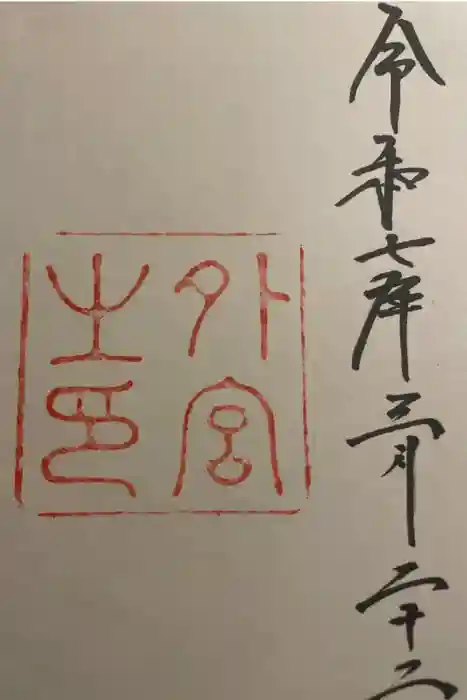 令和七年三月二十二
外宮
之印